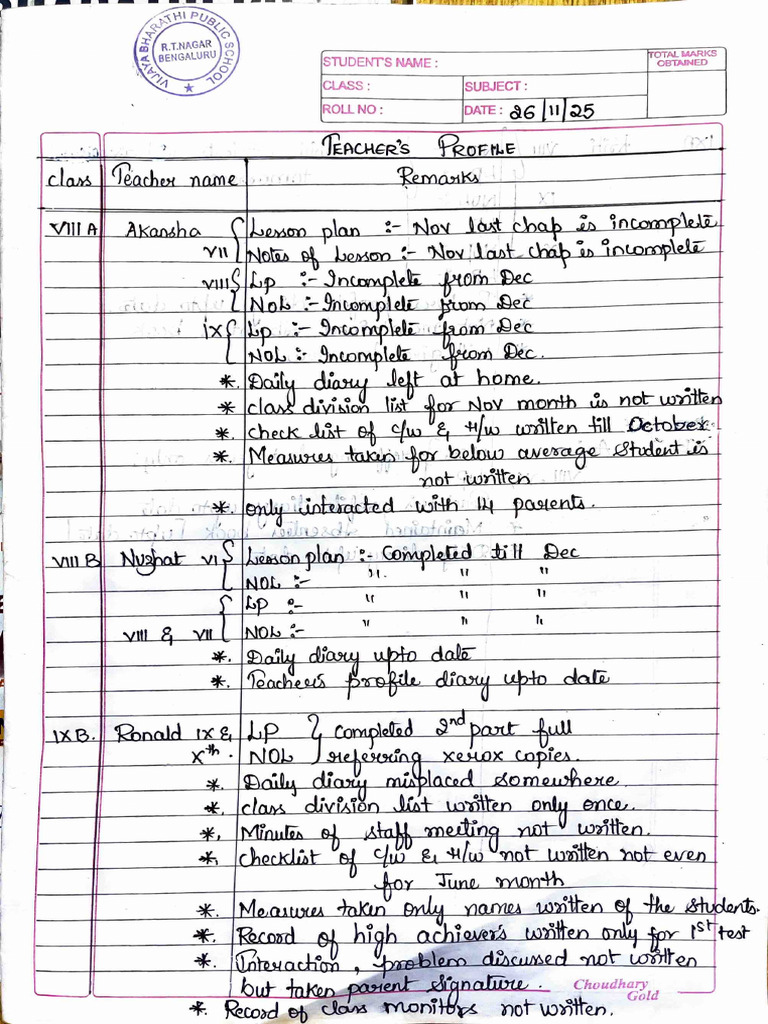 VIJAYA BHARATHI PUBLIC SCHOOL
R.T.NAGAR
BENGALURU
STUDENT'S NAME :
TOTAL MARKS
OBTAINED
CLASS : SUBJECT :
ROLL NO : DATE : 26/11/25
TEACHER'S PROFILE
class Teacher name Remarks
VIII A Akansha { Lesson plan :- Nov last chap is incomplete
VII { Notes of Lesson :- Nov last chap is incomplete
VIII { Lp :- Incomplete from Dec
NOL :- Incomplete from Dec
ix { Lp :- Incomplete from Dec
NOL :- Incomplete from Dec.
*. Daily diary left at home.
* class division list for Nov month is not written
*. check list of c/w & H/w written till October
*. Measures taken for below average student is
not written
*. only interacted with 14 parents.
VIII B Nuzhat VI { Lesson plan :- Completed till Dec
NOL :- " " "
{ LP :- " " "
VIII & VII NOL :- " " "
*. Daily diary upto date
*. Teacheer's profile diary upto date
IX B. Ronald IX & LP } completed 2nd part full
Xth . NOL } referring xerox copies.
*. Daily diary misplaced somewhere.
*. class division list written only once.
*, Minutes of staff meeting not written.
*, checklist of c/w & H/w not written not even
for June month
*. Measures taken only names written of the students.
*. Record of high achiever's written only for 1st test
*. Interaction, problem discussed not written
but taken parent signature.
Choudhary
Gold
*. Record of class monitors not written.